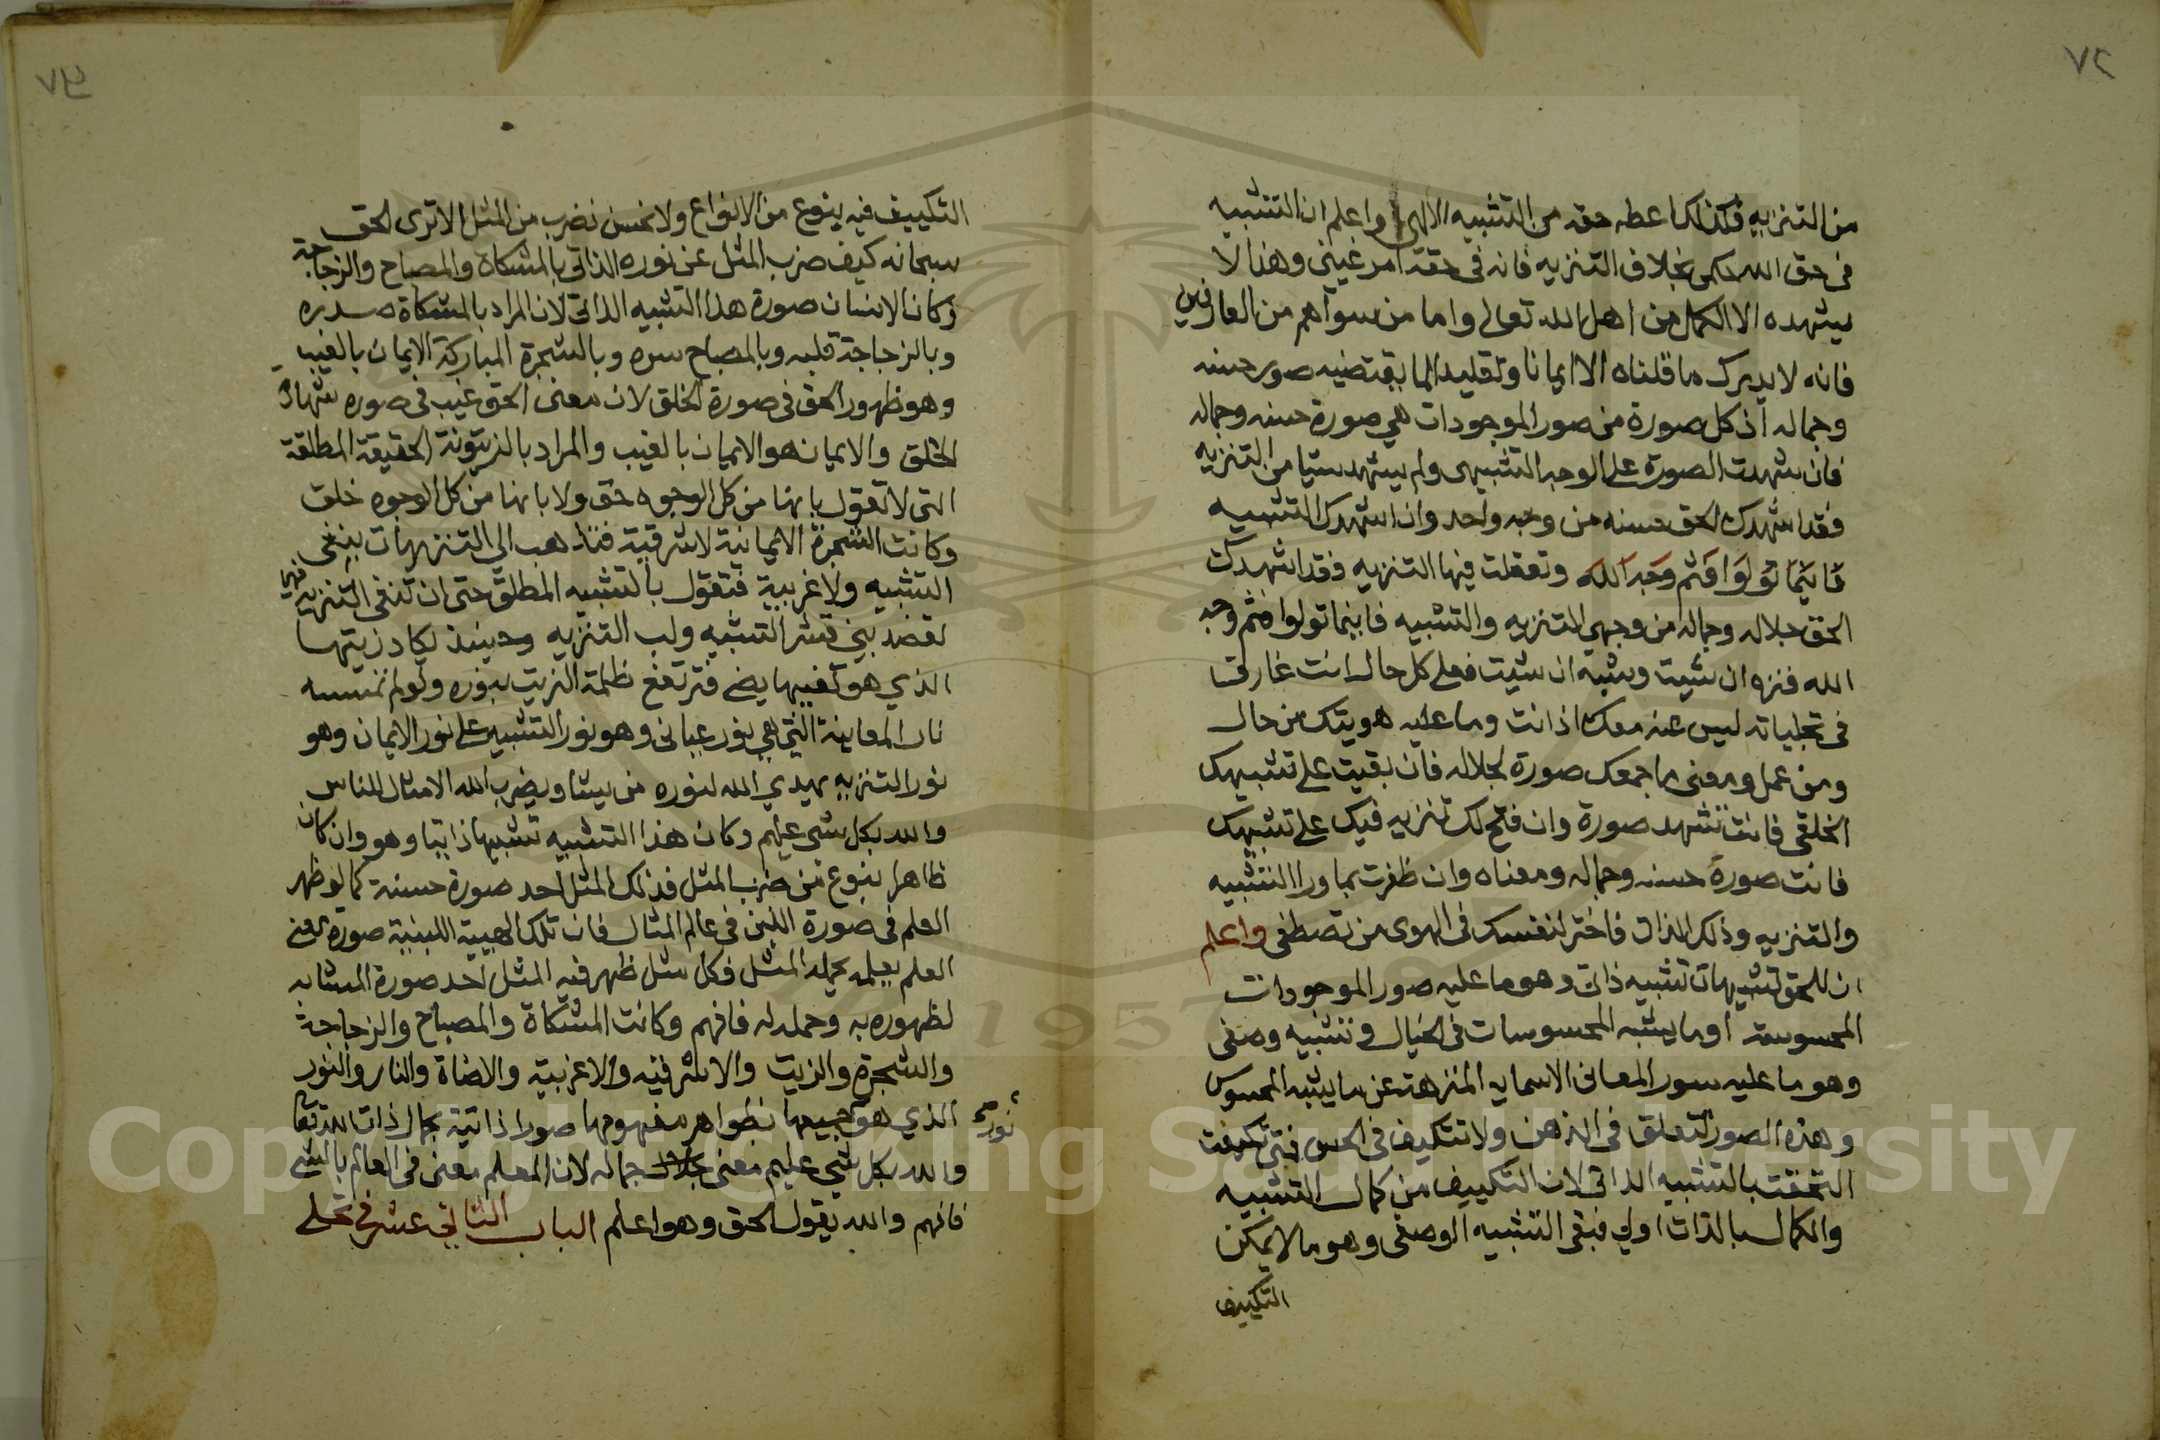 ٧٢
من التنزيه فكذلك اعطه حقه من التشبيه الالهي واعلم ان التشبيه
في حق الله حكمي بخلاف التنزيه فانه في حقه امر عيني وهذا لا
يشهده الا الكمل من اهل الله تعالى واما من سواهم من العارفين
فانه لا يدرك ما قلناه الا ايمانا وتقليدا لما يقتضيه صور حسنه
وجماله اذ كل صورة من صور الموجودات هي صورة حسنه وجماله
فان شهدت الصورة على الوجه التشبيهى ولم يشهد شيا من التنزيه
فقد اشهدك الحق حسنه من وجه واحد وان اشهدك التشبيه
فاينما تولوا فثم وجه الله وتعقلت فيها التنزيه فقد اشهدك
الحق جلاله وجماله من وجهي التنزيه والتشبيه فاينما تولوا فثم وجه
الله فنزه ان شيت وشبه ان شيت فعلى كل حال انت غارق
في تجلياته ليس عنه معك اذ انت وما عليه هويتك من حال
ومن عمل ومعنى ما جمعك صورة لجلاله فان بقيت على تشبيهك
الخلقي فانت تشهد صورة وان فتح لك تنزيه فيك على تشبيهك
فانت صورة حسنه وجماله ومعناه وان ظفرت بما ورا التشبيه
والتنزيه وذلك الذات فاختر لنفسك في الهوى من تصطفى واعلم
ان للحق تشبيهات تشبيه ذات وهو ما عليه صور الموجودات
المحسوسة او ما يشبه المحسوسات في الخيال وتشبيه وصفى
وهو ما عليه سور المعانى الاسمايه المنزهة عن ما يشبه المحسوس
وهذه الصور تتعلق في الذهن ولا تتكيف في الحس فمتى تكيفت
التحقت بالتشبيه الذاتي لان التكييف من كمال التشبيه
والكمال بالذات اولى فبقى التشبيه الوصفى وهو ما لا يمكن
التكييف
التكييف فيه بنوع من الانواع ولا نحسن نضرب من المثل الا ترى الحق
سبحانه كيف ضرب المثل عن نوره الذاتي بالمشكاة والمصباح والزجاجة
وكان الانسان صورة هذا التشبيه الذاتي لان المراد بالمشكاة صدره
وبالزجاجة قلبه وبالمصباح سره وبالشجرة المباركة الايمان بالغيب
وهو ظهور الحق في صورة الخلق لان معنى الحق غيب في صوره شهادة
الخلق والايمان هو الايمان بالغيب والمراد بالزيتونة الحقيقة المطلقة
التى لا تقول بانها من كل الوجوه حق ولا بانها من كل الوجوه خلق
وكانت الشجرة الايمانية لا شرقية فتذهب الى التنزيهات بنفي
التشبيه ولا غربية فتقول بالتشبيه المطلق حتى ان تنفى التنزيه فهى
لقصد بين قشر التشبيه ولب التنزيه وحينيذ يكاد زيتها
الذي هو يقينها يضي فترتفع ظلمة الزيت بنوره ولو لم تمسسه
نار المعاينة التي هي نور عيانى وهو نور التشبيه على نور الايمان وهو
نور التنزيه يهدي الله لنوره من يشا ويضرب الله الامثال للناس
والله بكل شي عليم وكان هذا التشبيه تشبيها ذاتيا وهو وان كان
ظاهرا بنوع من ضرب المثل فذلك المثل احد صورة حسنة كما لو ظهر
العلم في صورة اللبن في عالم المثال فان تلك الهيية اللبنية صورة معنى
العلم بحمله المثل فكل مثل ظهر فيه المثل احد صورة المشابه
لظهوره به وحمله له فافهم وكانت المشكاة والمصباح والزجاجة
والشجرة والزيت والا شرقيه والا غربية والاضاة والنار والنور
الذي هو جميعها بظواهر مفهومها صورا ذاتية بجمال ذات الله تعالى
والله بكل شي عليم معنى جماله لان العلم معنى في العالم بالشي
فافهم والله يقول الحق وهو اعلم الباب الثاني عشر في تجلي
نور
1957
Copyright © King Saud University